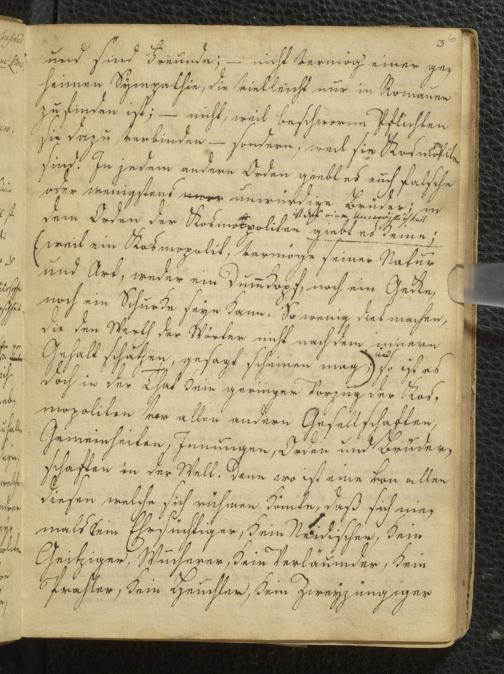 36
und sind Freunde; — nicht vermög einer ge=
heimen Sympathie, die vielleicht nur in Romanen
zu finden ist; — nicht, weil beschworne Pflichten
sie dazu verbinden — sondern, weil sie Kosmopoliten
sind. In jedem andern Orden giebt es auch falsche
oder wenigstens unwürdige Brüder; in
dem Orden der Kosmopoliten giebt es keine;
(weil ein Kosmopolit, vermöge seiner Natur
und Art, weder ein Dummkopf, noch ein Gecke,
noch ein Schurke seyn kann. So wenig dies manchen,
die den Werth der Wörter nicht nach dem innern
Gehalt schätzen, gesagt scheinen mag;) so ist es
doch in der That kein geringer Vorzug der Kos=
mopoliten vor allen andern Gesellschaften,
Gemeinheiten, Innungen, Orden und Brüder=
schaften in der Welt. Denn wo ist eine von allen
diesen welche sich rühmen könnte, daß sich nie=
mals kein Ehrsüchtiger, kein Neidischer, kein
Geitziger, Wucherer, kein Verläumder, kein
Prahler, kein Heuchler, kein Zweyzüngiger